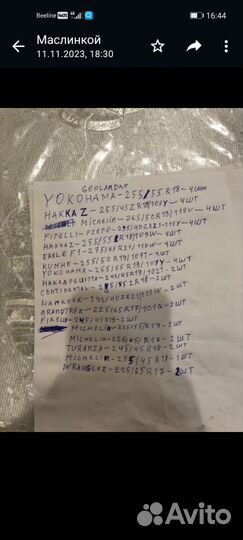 Beeline 16:44
Маслинкой
11.11.2023, 18:30
GEOLANDAR
YOKOHAMA-255/55 R18-4шт
HAKKA Z-255/45ZR18/103Y-4ШТ
MICHELIN-265/50R19/110V-4ШТ
PIRELLI-PZERO-295/40ZR21-111Y-4ШТ
HAKKAZ-255/55R18/109W-4ШТ
EAGLE F1-275/45R21/110W-4ШТ
KUMHO-255/50R19/107T-4ШТ
YOKOHAMA-265/55R19/109V-4ШТ
HAKKAPELIITTA-245/45R19/102T-2ШТ
CONTINENTAL-245/45ZR18-2ШТ
HANKOOK-295/40ZR21/111W-2ШТ
GRANDTREK-225/65R18/101Q-2ШТ
PIRELLI-245/45R19-2ШТ
MICHELIN-215/55/R17-2ШТ
MICHELIN-225/45/R17-2ШТ
TURANZA-245/45R18-2ШТ
MICHELIN-255/45R18-1ШТ
WRANGLER-235/65R17-2ШТ
Avito